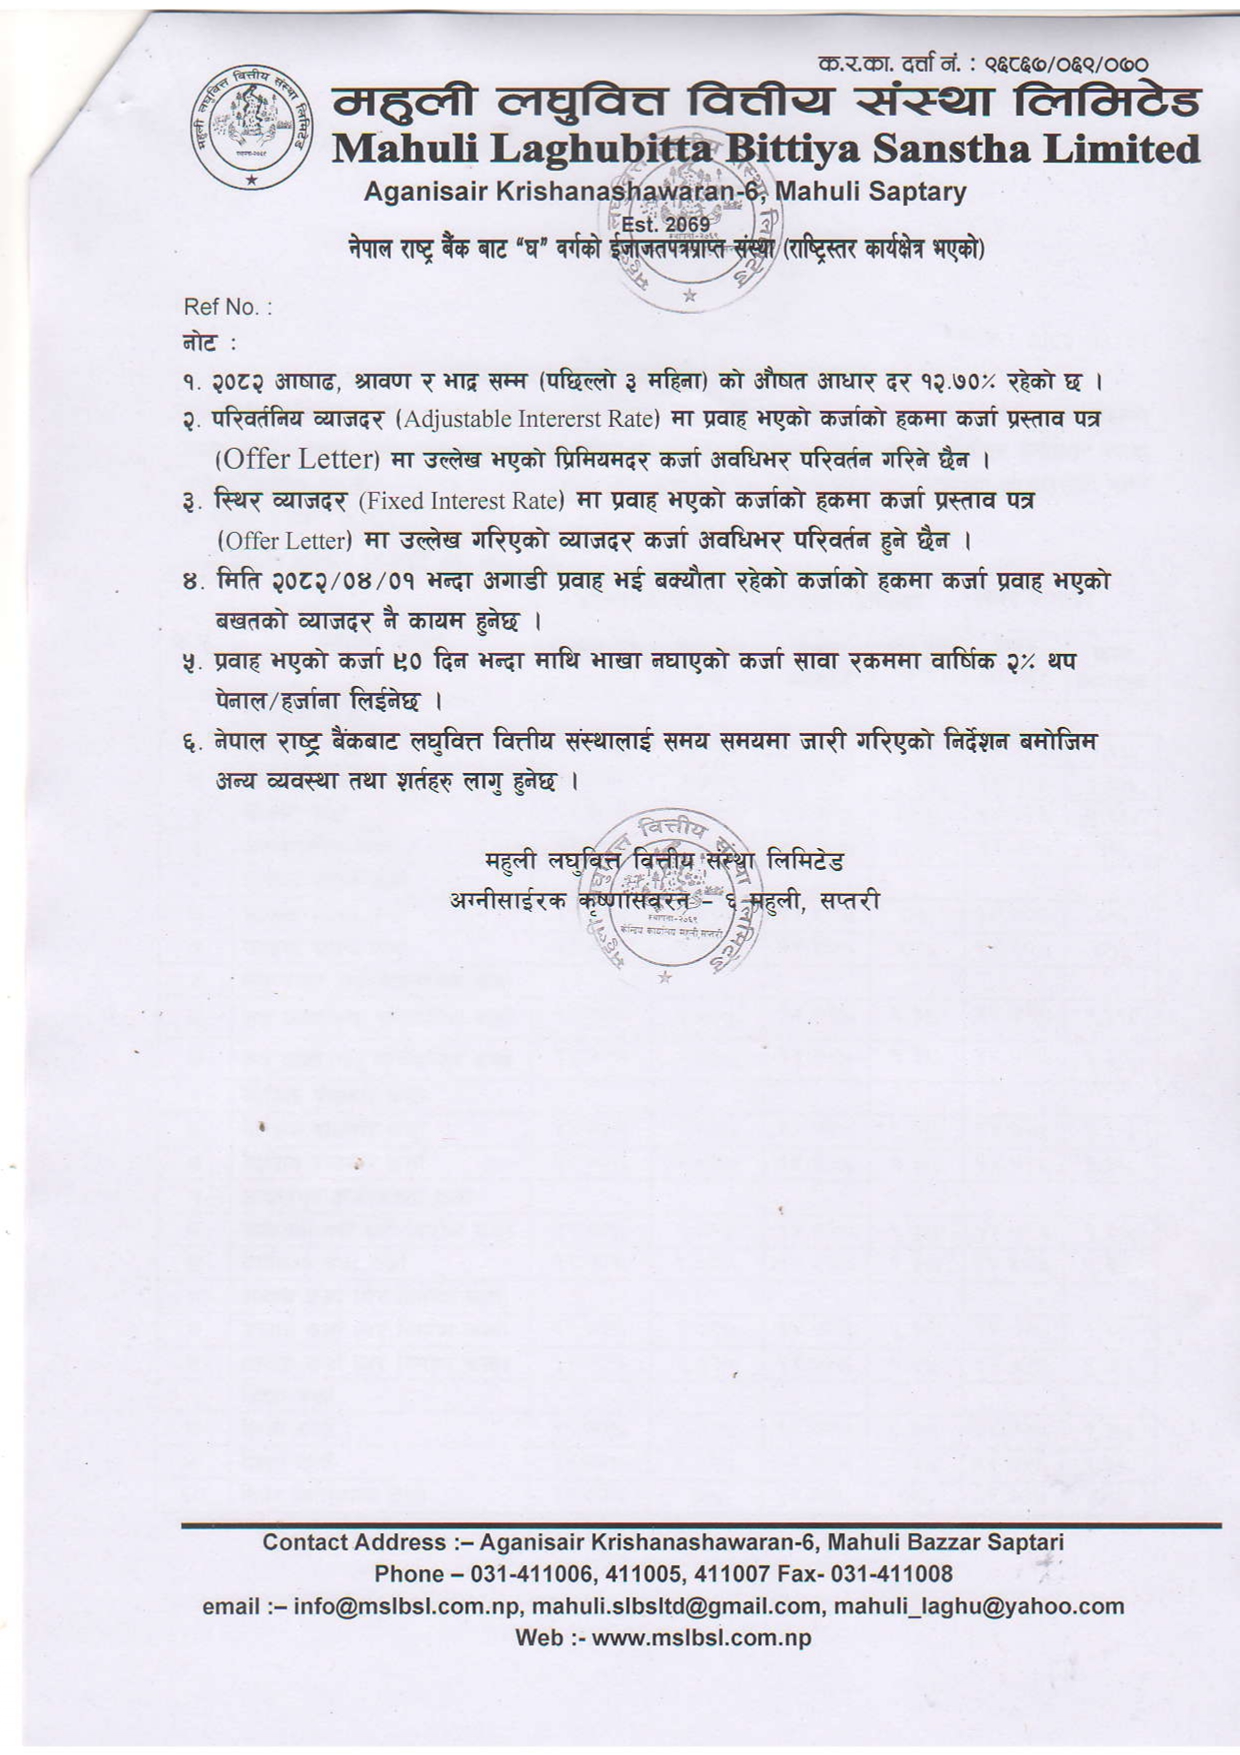 क.र.का. दर्ता नं. : ९६८६७/०६९/०७०
महुली लघुवित्त वित्तीय संस्था लिमिटेड
Mahuli Laghubitta Bittiya Sanstha Limited
Aganisair Krishanashawaran-6, Mahuli Saptary
Est. 2069
नेपाल राष्ट्र बैंक बाट “घ” वर्गको ईजाजतपत्रप्राप्त संस्था (राष्ट्रिस्तर कार्यक्षेत्र भएको)
Ref No. :
नोट :
१. २०८२ आषाढ, श्रावण र भाद्र सम्म (पछिल्लो ३ महिना) को औषत आधार दर १२.७०% रहेको छ ।
२. परिवर्तनिय व्याजदर (Adjustable Intererst Rate) मा प्रवाह भएको कर्जाको हकमा कर्जा प्रस्ताव पत्र
(Offer Letter) मा उल्लेख भएको प्रिमियमदर कर्जा अवधिभर परिवर्तन गरिने छैन ।
३. स्थिर व्याजदर (Fixed Interest Rate) मा प्रवाह भएको कर्जाको हकमा कर्जा प्रस्ताव पत्र
(Offer Letter) मा उल्लेख गरिएको व्याजदर कर्जा अवधिभर परिवर्तन हुने छैन ।
४. मिति २०८२/०४/०१ भन्दा अगाडी प्रवाह भई बक्यौता रहेको कर्जाको हकमा कर्जा प्रवाह भएको
बखतको व्याजदर नै कायम हुनेछ ।
५. प्रवाह भएको कर्जा ९० दिन भन्दा माथि भाखा नघाएको कर्जा सावा रकममा वार्षिक २% थप
पेनाल/हर्जाना लिईनेछ ।
६. नेपाल राष्ट्र बैंकबाट लघुवित्त वित्तीय संस्थालाई समय समयमा जारी गरिएको निर्देशन बमोजिम
अन्य व्यवस्था तथा शर्तहरु लागु हुनेछ ।
महुली लघुवित्त वित्तीय संस्था लिमिटेड
अग्नीसाईरक कृष्णासवरन – ६ महुली, सप्तरी
स्थापना-२०६९
केन्द्रिय कार्यालय महुली,सप्तरी
Contact Address :– Aganisair Krishanashawaran-6, Mahuli Bazzar Saptari
Phone – 031-411006, 411005, 411007 Fax- 031-411008
email :– info@mslbsl.com.np, mahuli.slbsltd@gmail.com, mahuli_laghu@yahoo.com
Web :- www.mslbsl.com.np